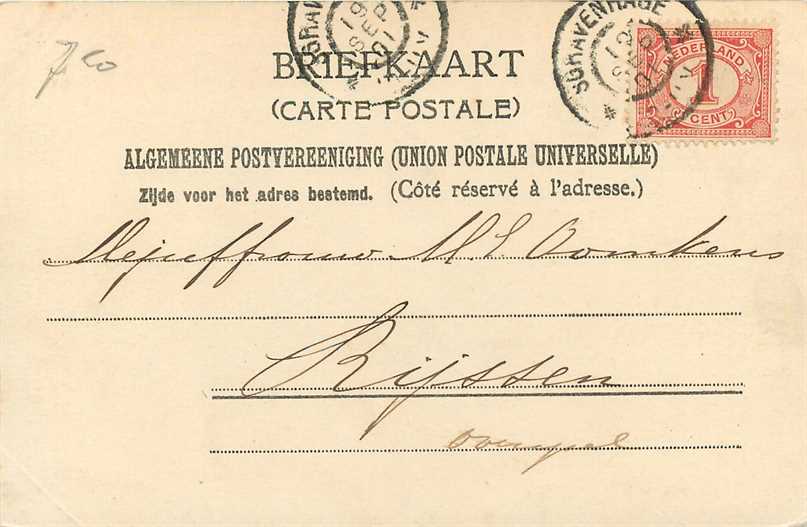 7.50
SGRAVENHAGE
19 SEP 01
SGRAVENHAGE
19 SEP 01
NEDERLAND
1
CENT
BRIEFKAART
(CARTE POSTALE)
ALGEMEENE POSTVEREENIGING (UNION POSTALE UNIVERSELLE)
Zijde voor het adres bestemd. (Côté réservé à l'adresse.)
Mejuffrouw M. S. Oomkens
Rijssen